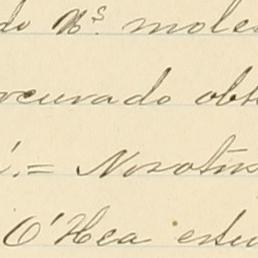 do Ns. moles
rocurado obte
i.= Nosotros
O'Hea estu